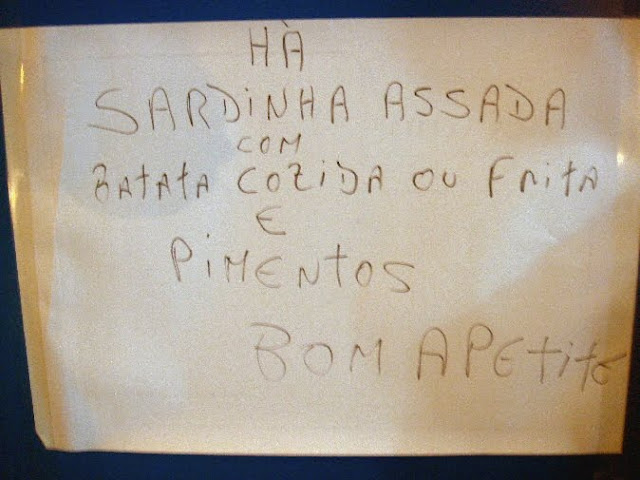 HÀ
SARDINHA ASSADA
COM
BATATA COZIDA OU FRITA
E
PIMENTOS
BOM APETITE